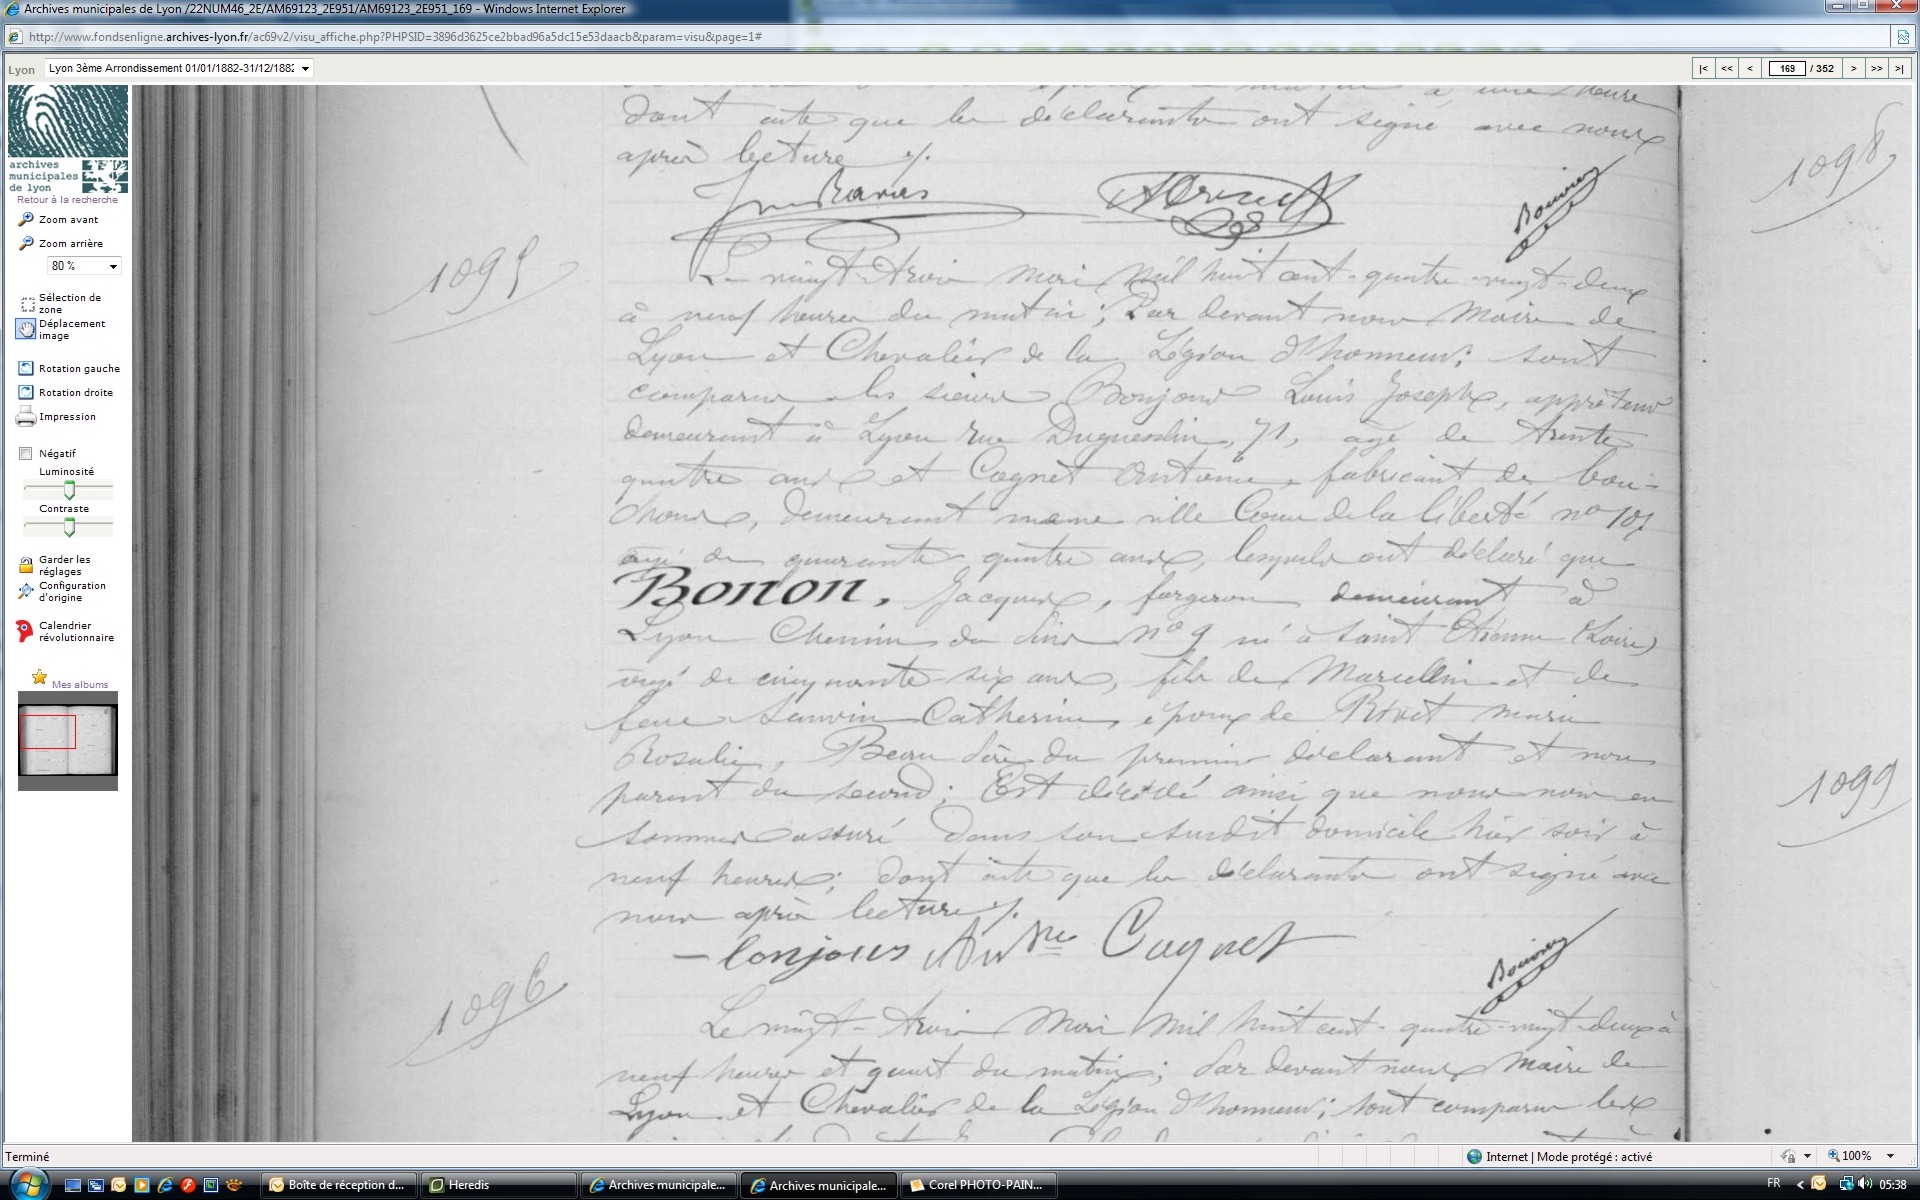 Archives municipales de Lyon /22NUM46_2E/AM69123_2E951/AM69123_2E951_169 - Windows Internet Explorer
http://www.fondsenligne.archives-lyon.fr/ac69v2/visu_affiche.php?PHPSID=3896d3625ce2bbad96a5dc15e53daacb&param=visu&page=1#
Lyon
Lyon 3ème Arrondissement 01/01/1882-31/12/1882
|< << < 169 / 352 > >> >|
archives
municipales
de lyon
Retour à la recherche
Zoom avant
Zoom arrière
80 %
Sélection de
zone
Déplacement
image
Rotation gauche
Rotation droite
Impression
Négatif
Luminosité
Contraste
Garder les
réglages
Configuration
d'origine
Calendrier
révolutionnaire
Mes albums
à une heure
dont acte que les déclarants ont signé avec nous
après lecture ./.
Bouvier
1098
1095
Le vingt-trois Mars mil huit cent-quatre-vingt-deux
à neuf heures du matin; Par devant nous Maire de
Lyon et Chevalier de la Légion d'honneur; sont
comparus les sieurs Bonjour Louis Joseph, apprêteur
demeurant à Lyon rue Duguesclin, 71, âgé de trente
quatre ans et Cognet Antoine, fabricant de bou-
chons, demeurant même ville Cours de la liberté no 107
âgé de quarante quatre ans, lesquels ont déclaré que
Bonon, Jacques, forgeron demeurant à
Lyon Chemin du no 9 né à Saint Etienne (Loire)
âgé de cinquante-six ans, fils de Marcellin et de
feue Catherine, époux de Rivet Marie
Rosalie, Beau Père du premier déclarant et non
parent du second; Est décédé ainsi que nous nous en
sommes assuré dans son susdit domicile hier soir à
neuf heures; dont acte que les déclarants ont signé avec
nous après lecture ./.
bonjour Antne Cognet
Bouvier
1099
1096
Le vingt-trois Mars mil huit cent-quatre-vingt-deux à
neuf heures et quart du matin; Par devant nous Maire de
Lyon et Chevalier de la Légion d'honneur; sont comparus les
Terminé
Internet | Mode protégé : activé
100%
Boîte de réception d...
Heredis
Archives municipale...
Archives municipale...
Corel PHOTO-PAIN...
FR
05:38